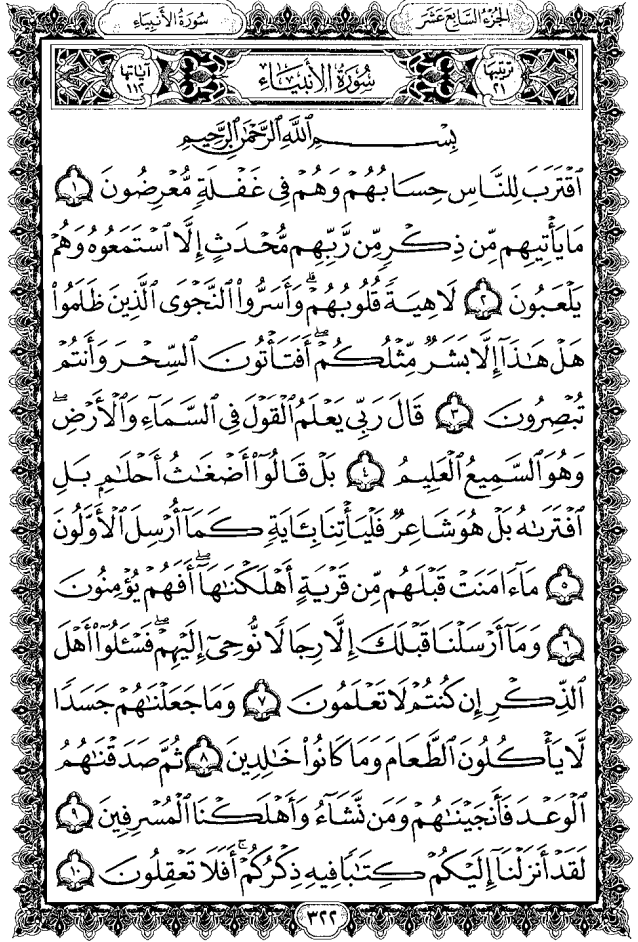 سُورَةُ الأَنبِيَاءِ
الجُزْءُ السَّابِعَ عَشَرَ
ترتيبها ٢١
سُورَةُ الأَنبِيَاءِ
آياتها ١١٢
بِسْمِ اللَّهِ الرَّحْمَٰنِ الرَّحِيمِ
ٱقْتَرَبَ لِلنَّاسِ حِسَابُهُمْ وَهُمْ فِى غَفْلَةٍ مُّعْرِضُونَ ١
مَا يَأْتِيهِم مِّن ذِكْرٍ مِّن رَّبِّهِم مُّحْدَثٍ إِلَّا ٱسْتَمَعُوهُ وَهُمْ
يَلْعَبُونَ ٢ لَاهِيَةً قُلُوبُهُمْ ۗ وَأَسَرُّوا۟ ٱلنَّجْوَى ٱلَّذِينَ ظَلَمُوا۟
هَلْ هَٰذَآ إِلَّا بَشَرٌ مِّثْلُكُمْ ۖ أَفَتَأْتُونَ ٱلسِّحْرَ وَأَنتُمْ
تُبْصِرُونَ ٣ قَالَ رَبِّى يَعْلَمُ ٱلْقَوْلَ فِى ٱلسَّمَآءِ وَٱلْأَرْضِ ۖ
وَهُوَ ٱلسَّمِيعُ ٱلْعَلِيمُ ٤ بَلْ قَالُوٓا۟ أَضْغَٰثُ أَحْلَٰمٍ بَلِ
ٱفْتَرَىٰهُ بَلْ هُوَ شَاعِرٌ فَلْيَأْتِنَا بِـَٔايَةٍ كَمَآ أُرْسِلَ ٱلْأَوَّلُونَ
٥ مَآ ءَامَنَتْ قَبْلَهُم مِّن قَرْيَةٍ أَهْلَكْنَٰهَآ ۖ أَفَهُمْ يُؤْمِنُونَ
٦ وَمَآ أَرْسَلْنَا قَبْلَكَ إِلَّا رِجَالًا نُّوحِىٓ إِلَيْهِمْ ۖ فَسْـَٔلُوٓا۟ أَهْلَ
ٱلذِّكْرِ إِن كُنتُمْ لَا تَعْلَمُونَ ٧ وَمَا جَعَلْنَٰهُمْ جَسَدًا
لَّا يَأْكُلُونَ ٱلطَّعَامَ وَمَا كَانُوا۟ خَٰلِدِينَ ٨ ثُمَّ صَدَقْنَٰهُمُ
ٱلْوَعْدَ فَأَنجَيْنَٰهُمْ وَمَن نَّشَآءُ وَأَهْلَكْنَا ٱلْمُسْرِفِينَ ٩
لَقَدْ أَنزَلْنَآ إِلَيْكُمْ كِتَٰبًا فِيهِ ذِكْرُكُمْ ۖ أَفَلَا تَعْقِلُونَ ١٠
٣٢٢